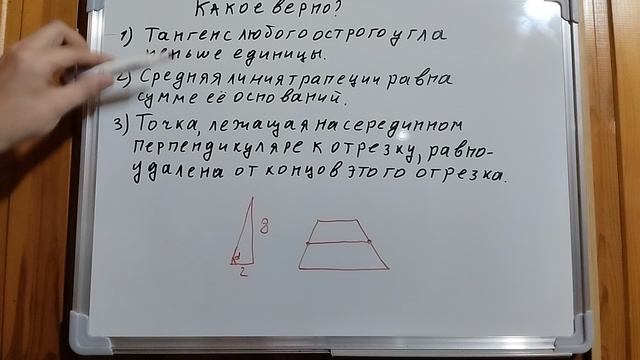 Какое верно?
1) Тангенс любого острого угла
меньше единицы.
2) Средняя линия трапеции равна
сумме её оснований.
3) Точка, лежащая на серединном
перпендикуляре к отрезку, равно-
удалена от концов этого отрезка.
8
α
2